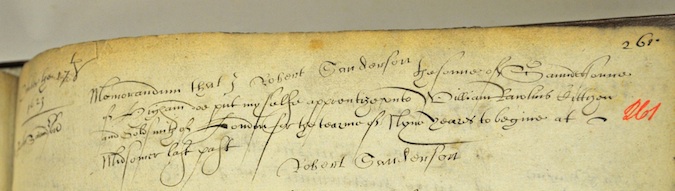 261
Memorandum that I Robert Sanderson the sonne of Saundersonne
of Higham doe put my selfe apprentize unto William Rawlins Cittizen
and Goldsmith of London for the tearme of Nyne yeares to begine at
Midsomer last past
Robert Sanderson
261